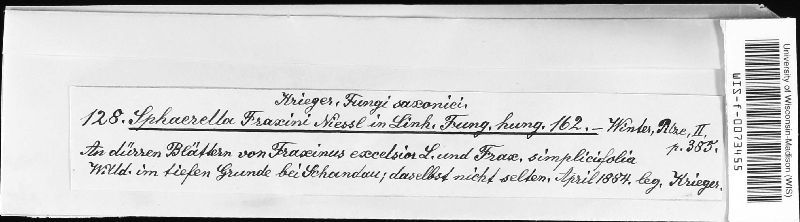 Krieger, Fungi saxonici.
128. Sphaerella Fraxini Niessl in Linh. Fung. hung. 162. — Winter, Pilze, II.
p. 385.
An dürren Blättern von Fraxinus excelsior L. und Frax. simplicifolia
Willd. im tiefen Grunde bei Schandau; daselbst nicht selten. April 1884. leg. Krieger.
University of Wisconsin-Madison (WIS)
WIS-f-0073455